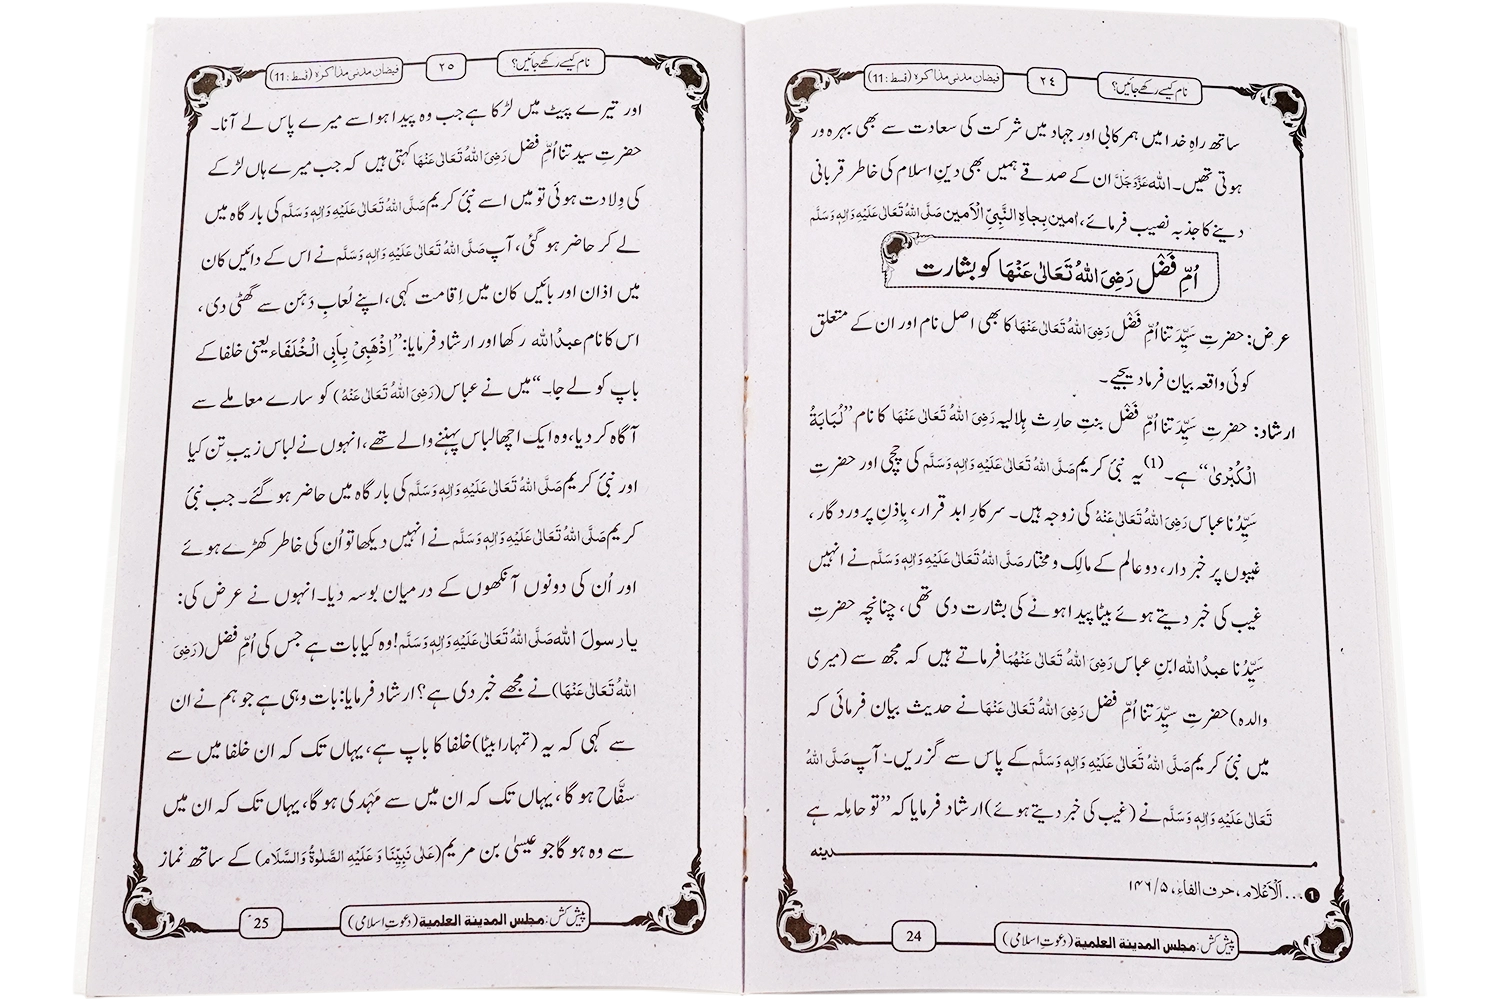 نام کیسے رکھے جائیں؟
٢٤
فیضان مدنی مذاکرہ (قسط: 11)
ساتھ راہِ خدا میں ہمرکابی اور جہاد میں شرکت کی سعادت سے بھی بہرہ ور
ہوتی تھیں۔ اللہ عَزَّوَجَلَّ ان کے صدقے ہمیں بھی دینِ اسلام کی خاطر قربانی
دینے کا جذبہ نصیب فرمائے، اٰمین بِجاہِ النَّبِیِّ الْاَمین صَلَّی اللهُ تَعَالٰی عَلَیْہِ وَاٰلِہٖ وَسَلَّم
اُمِّ فَضْل رَضِیَ اللهُ تَعَالٰی عَنْہَا کو بشارت
عرض: حضرتِ سَیِّدَتنا اُمِّ فَضْل رَضِیَ اللهُ تَعَالٰی عَنْہَا کا بھی اصل نام اور ان کے متعلق
کوئی واقعہ بیان فرما دیجیے۔
ارشاد: حضرتِ سَیِّدَتنا اُمِّ فَضْل بنتِ حارِث ہِلالیہ رَضِیَ اللهُ تَعَالٰی عَنْہَا کا نام ”لُبَابَۃُ
الْکُبْریٰ“ ہے۔ (1) یہ نبیٔ کریم صَلَّی اللهُ تَعَالٰی عَلَیْہِ وَاٰلِہٖ وَسَلَّم کی چچی اور حضرتِ
سَیِّدُنا عباس رَضِیَ اللهُ تَعَالٰی عَنْہُ کی زوجہ ہیں۔ سرکارِ ابد قرار، بِاِذنِ پروردگار،
غیبوں پر خبردار، دو عالم کے مالِک و مختار صَلَّی اللهُ تَعَالٰی عَلَیْہِ وَاٰلِہٖ وَسَلَّم نے انہیں
غیب کی خبر دیتے ہوئے بیٹا پیدا ہونے کی بشارت دی تھی، چنانچہ حضرتِ
سَیِّدُنا عبدُ اللہ ابنِ عباس رَضِیَ اللهُ تَعَالٰی عَنْہُمَا فرماتے ہیں کہ مجھ سے (میری
والدہ) حضرتِ سَیِّدَتنا اُمِّ فضل رَضِیَ اللهُ تَعَالٰی عَنْہَا نے حدیث بیان فرمائی کہ
میں نبیٔ کریم صَلَّی اللهُ تَعَالٰی عَلَیْہِ وَاٰلِہٖ وَسَلَّم کے پاس سے گزریں۔ آپ صَلَّی اللهُ
تَعَالٰی عَلَیْہِ وَاٰلِہٖ وَسَلَّم نے (غیب کی خبر دیتے ہوئے) ارشاد فرمایا کہ ”تو حامِلہ ہے
مـدینہ
1 ... اَلْاَعْلَام، حرف الفاء، ۵/۱۴۶
24
پیش کش: مجلس المدینة العلمیة (دعوتِ اسلامی)
نام کیسے رکھے جائیں؟
٢٥
فیضان مدنی مذاکرہ (قسط: 11)
اور تیرے پیٹ میں لڑکا ہے جب وہ پیدا ہو اسے میرے پاس لے آنا۔
حضرتِ سیدتنا اُمِّ فضل رَضِیَ اللهُ تَعَالٰی عَنْہَا کہتی ہیں کہ جب میرے ہاں لڑکے
کی وِلادت ہوئی تو میں اسے نبیٔ کریم صَلَّی اللهُ تَعَالٰی عَلَیْہِ وَاٰلِہٖ وَسَلَّم کی بارگاہ میں
لے کر حاضر ہو گئی، آپ صَلَّی اللهُ تَعَالٰی عَلَیْہِ وَاٰلِہٖ وَسَلَّم نے اس کے دائیں کان
میں اذان اور بائیں کان میں اِقامت کہی، اپنے لُعابِ دَہَن سے گھٹی دی،
اس کا نام عبدُ اللہ رکھا اور ارشاد فرمایا: ”اِذْھَبِیْ بِاَبِی الْخُلَفَاء یعنی خلفا کے
باپ کو لے جا۔“ میں نے عباس (رَضِیَ اللهُ تَعَالٰی عَنْہُ) کو سارے معاملے سے
آگاہ کر دیا، وہ ایک اچھا لباس پہننے والے تھے، انہوں نے لباس زیبِ تن کیا
اور نبیٔ کریم صَلَّی اللهُ تَعَالٰی عَلَیْہِ وَاٰلِہٖ وَسَلَّم کی بارگاہ میں حاضر ہو گئے۔ جب نبیٔ
کریم صَلَّی اللهُ تَعَالٰی عَلَیْہِ وَاٰلِہٖ وَسَلَّم نے انہیں دیکھا تو اُن کی خاطر کھڑے ہوئے
اور اُن کی دونوں آنکھوں کے درمیان بوسہ دیا۔ انہوں نے عرض کی:
یا رسولَ اللہ صَلَّی اللهُ تَعَالٰی عَلَیْہِ وَاٰلِہٖ وَسَلَّم! وہ کیا بات ہے جس کی اُمِّ فضل (رَضِیَ
اللهُ تَعَالٰی عَنْہَا) نے مجھے خبر دی ہے؟ ارشاد فرمایا: بات وہی ہے جو ہم نے ان
سے کہی کہ یہ (تمہارا بیٹا) خلفا کا باپ ہے، یہاں تک کہ ان خلفا میں سے
سفّاح ہو گا، یہاں تک کہ ان میں سے مہدی ہو گا، یہاں تک کہ ان میں
سے وہ ہو گا جو عیسیٰ بن مریم (عَلٰی نَبِیِّنَا وَ عَلَیْہِ الصَّلٰوۃُ وَالسَّلَام) کے ساتھ نماز
25
پیش کش: مجلس المدینة العلمیة (دعوتِ اسلامی)